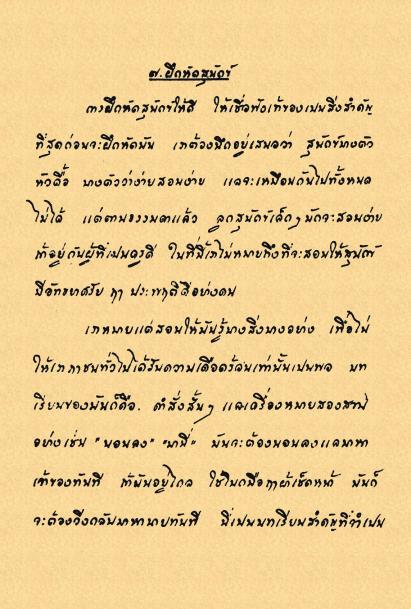 ๗. ฝึกหัดสุนัขไว้
การฝึกหัดสุนัขให้ดี ให้เชื่อฟังเจ้าของเป็นสิ่งสำคัญ
ที่สุดก่อนจะฝึกหัดมัน เราต้องนึกอยู่เสมอว่า สุนัขบางตัว
หัวดื้อ บางตัวว่าง่ายสอนง่าย และจะเหมือนกันไปทั้งหมด
ไม่ได้ แต่ตามธรรมดาแล้ว ลูกสุนัขเล็กๆมักจะสอนง่าย
ถ้าอยู่กับผู้ที่เป็นครูดี ในที่นี้เราไม่หมายถึงที่จะสอนให้สุนัข
มีอัธยาศรัย หรือ ประพฤติดีอย่างคน
เราหมายแต่สอนให้มันรู้บางสิ่งบางอย่าง เพื่อไม่
ให้เราภาชนทั่วไปได้รับความเดือดร้อนเท่านั้นเป็นพอ บท
เรียนของมันก็คือ. คำสั่งสั้นๆ และเครื่องหมายสองสาม
อย่างเช่น "นอนลง" "มานี่" มันจะต้องนอนลงและมาหา
เจ้าของทันที ถ้ามันอยู่ไกล ใช้โบกมือหรือผ้าเช็ดหน้า มันก็
จะต้องวิ่งกลับมาหานายทันที นี่เป็นบทเรียนสำคัญที่จำเป็น